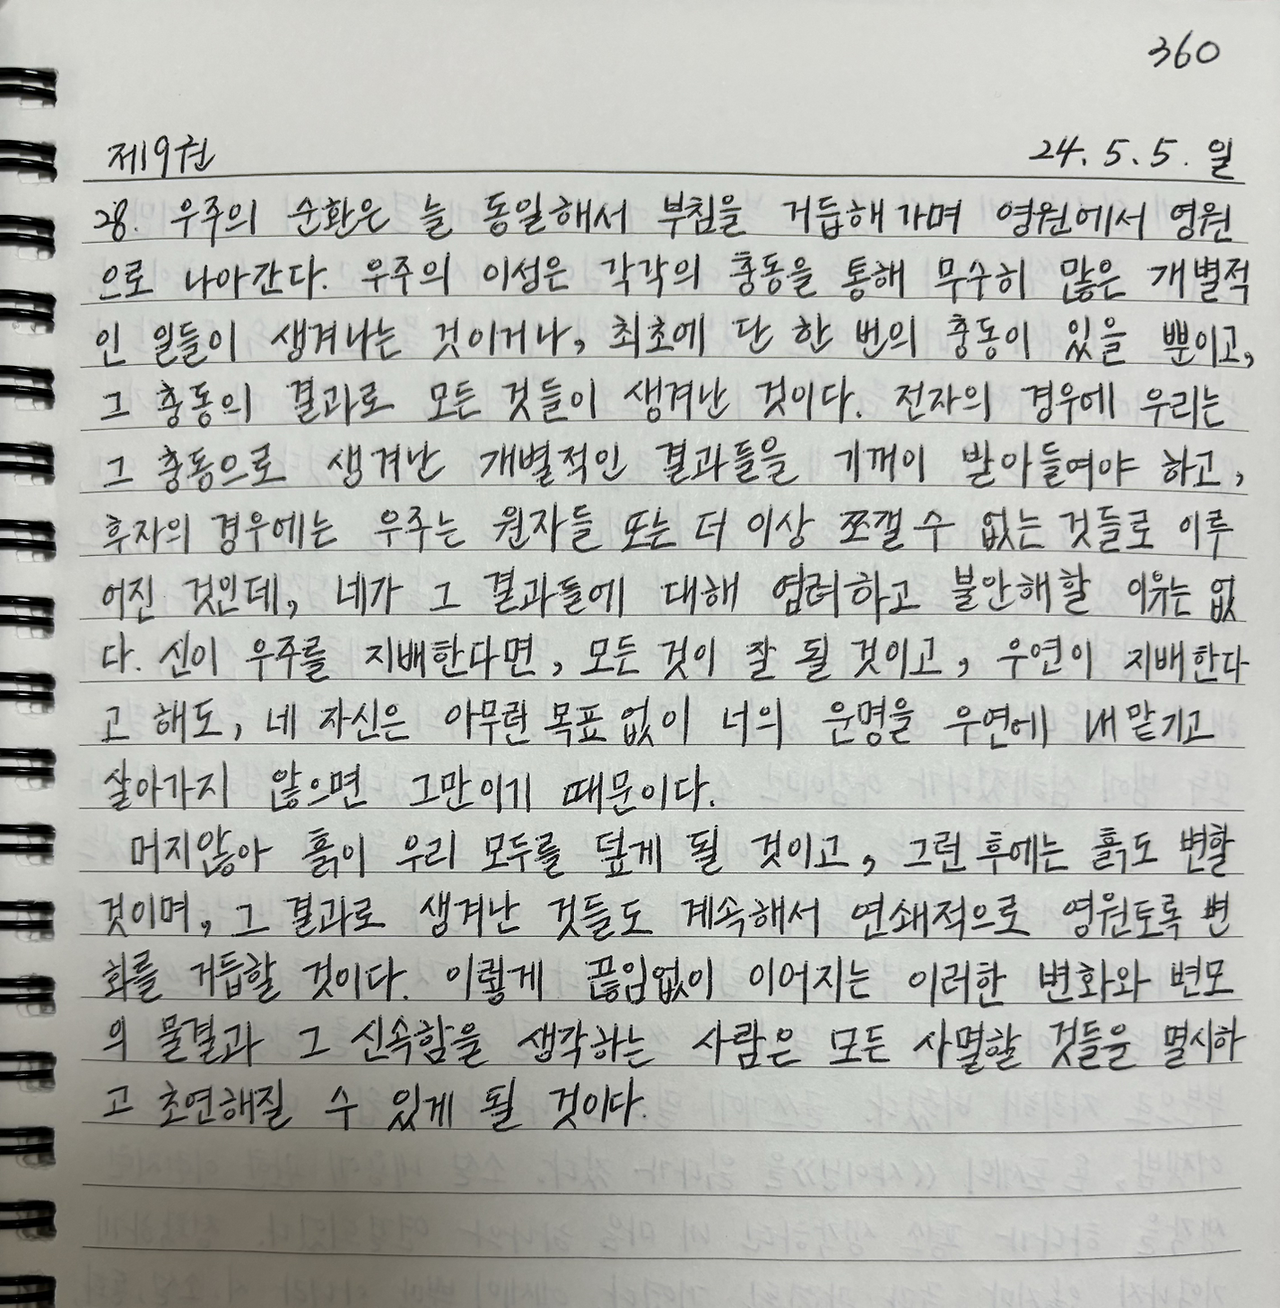 360
제9권 24.5.5. 일
28. 우주의 순환은 늘 동일해서 부침을 거듭해가며 영원에서 영원
으로 나아간다. 우주의 이성은 각각의 충동을 통해 무수히 많은 개별적
인 일들이 생겨나는 것이거나, 최초에 단 한 번의 충동이 있을 뿐이고,
그 충동의 결과로 모든 것들이 생겨난 것이다. 전자의 경우에 우리는
그 충동으로 생겨난 개별적인 결과들을 기꺼이 받아들여야 하고,
후자의 경우에는 우주는 원자들 또는 더 이상 쪼갤 수 없는 것들로 이루
어진 것인데, 네가 그 결과들에 대해 염려하고 불안해할 이유는 없
다. 신이 우주를 지배한다면, 모든 것이 잘 될 것이고, 우연이 지배한다
고 해도, 네 자신은 아무런 목표 없이 너의 운명을 우연에 내맡기고
살아가지 않으면 그만이기 때문이다.
머지않아 흙이 우리 모두를 덮게 될 것이고, 그런 후에는 흙도 변할
것이며, 그 결과로 생겨난 것들도 계속해서 연쇄적으로 영원토록 변
화를 거듭할 것이다. 이렇게 끊임없이 이어지는 이러한 변화와 변모
의 물결과 그 신속함을 생각하는 사람은 모든 사멸할 것들을 멸시하
고 초연해질 수 있게 될 것이다.